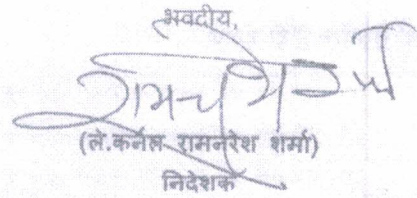 भवदीय,
(ले.कर्नल रामनरेश शर्मा)
निदेशक